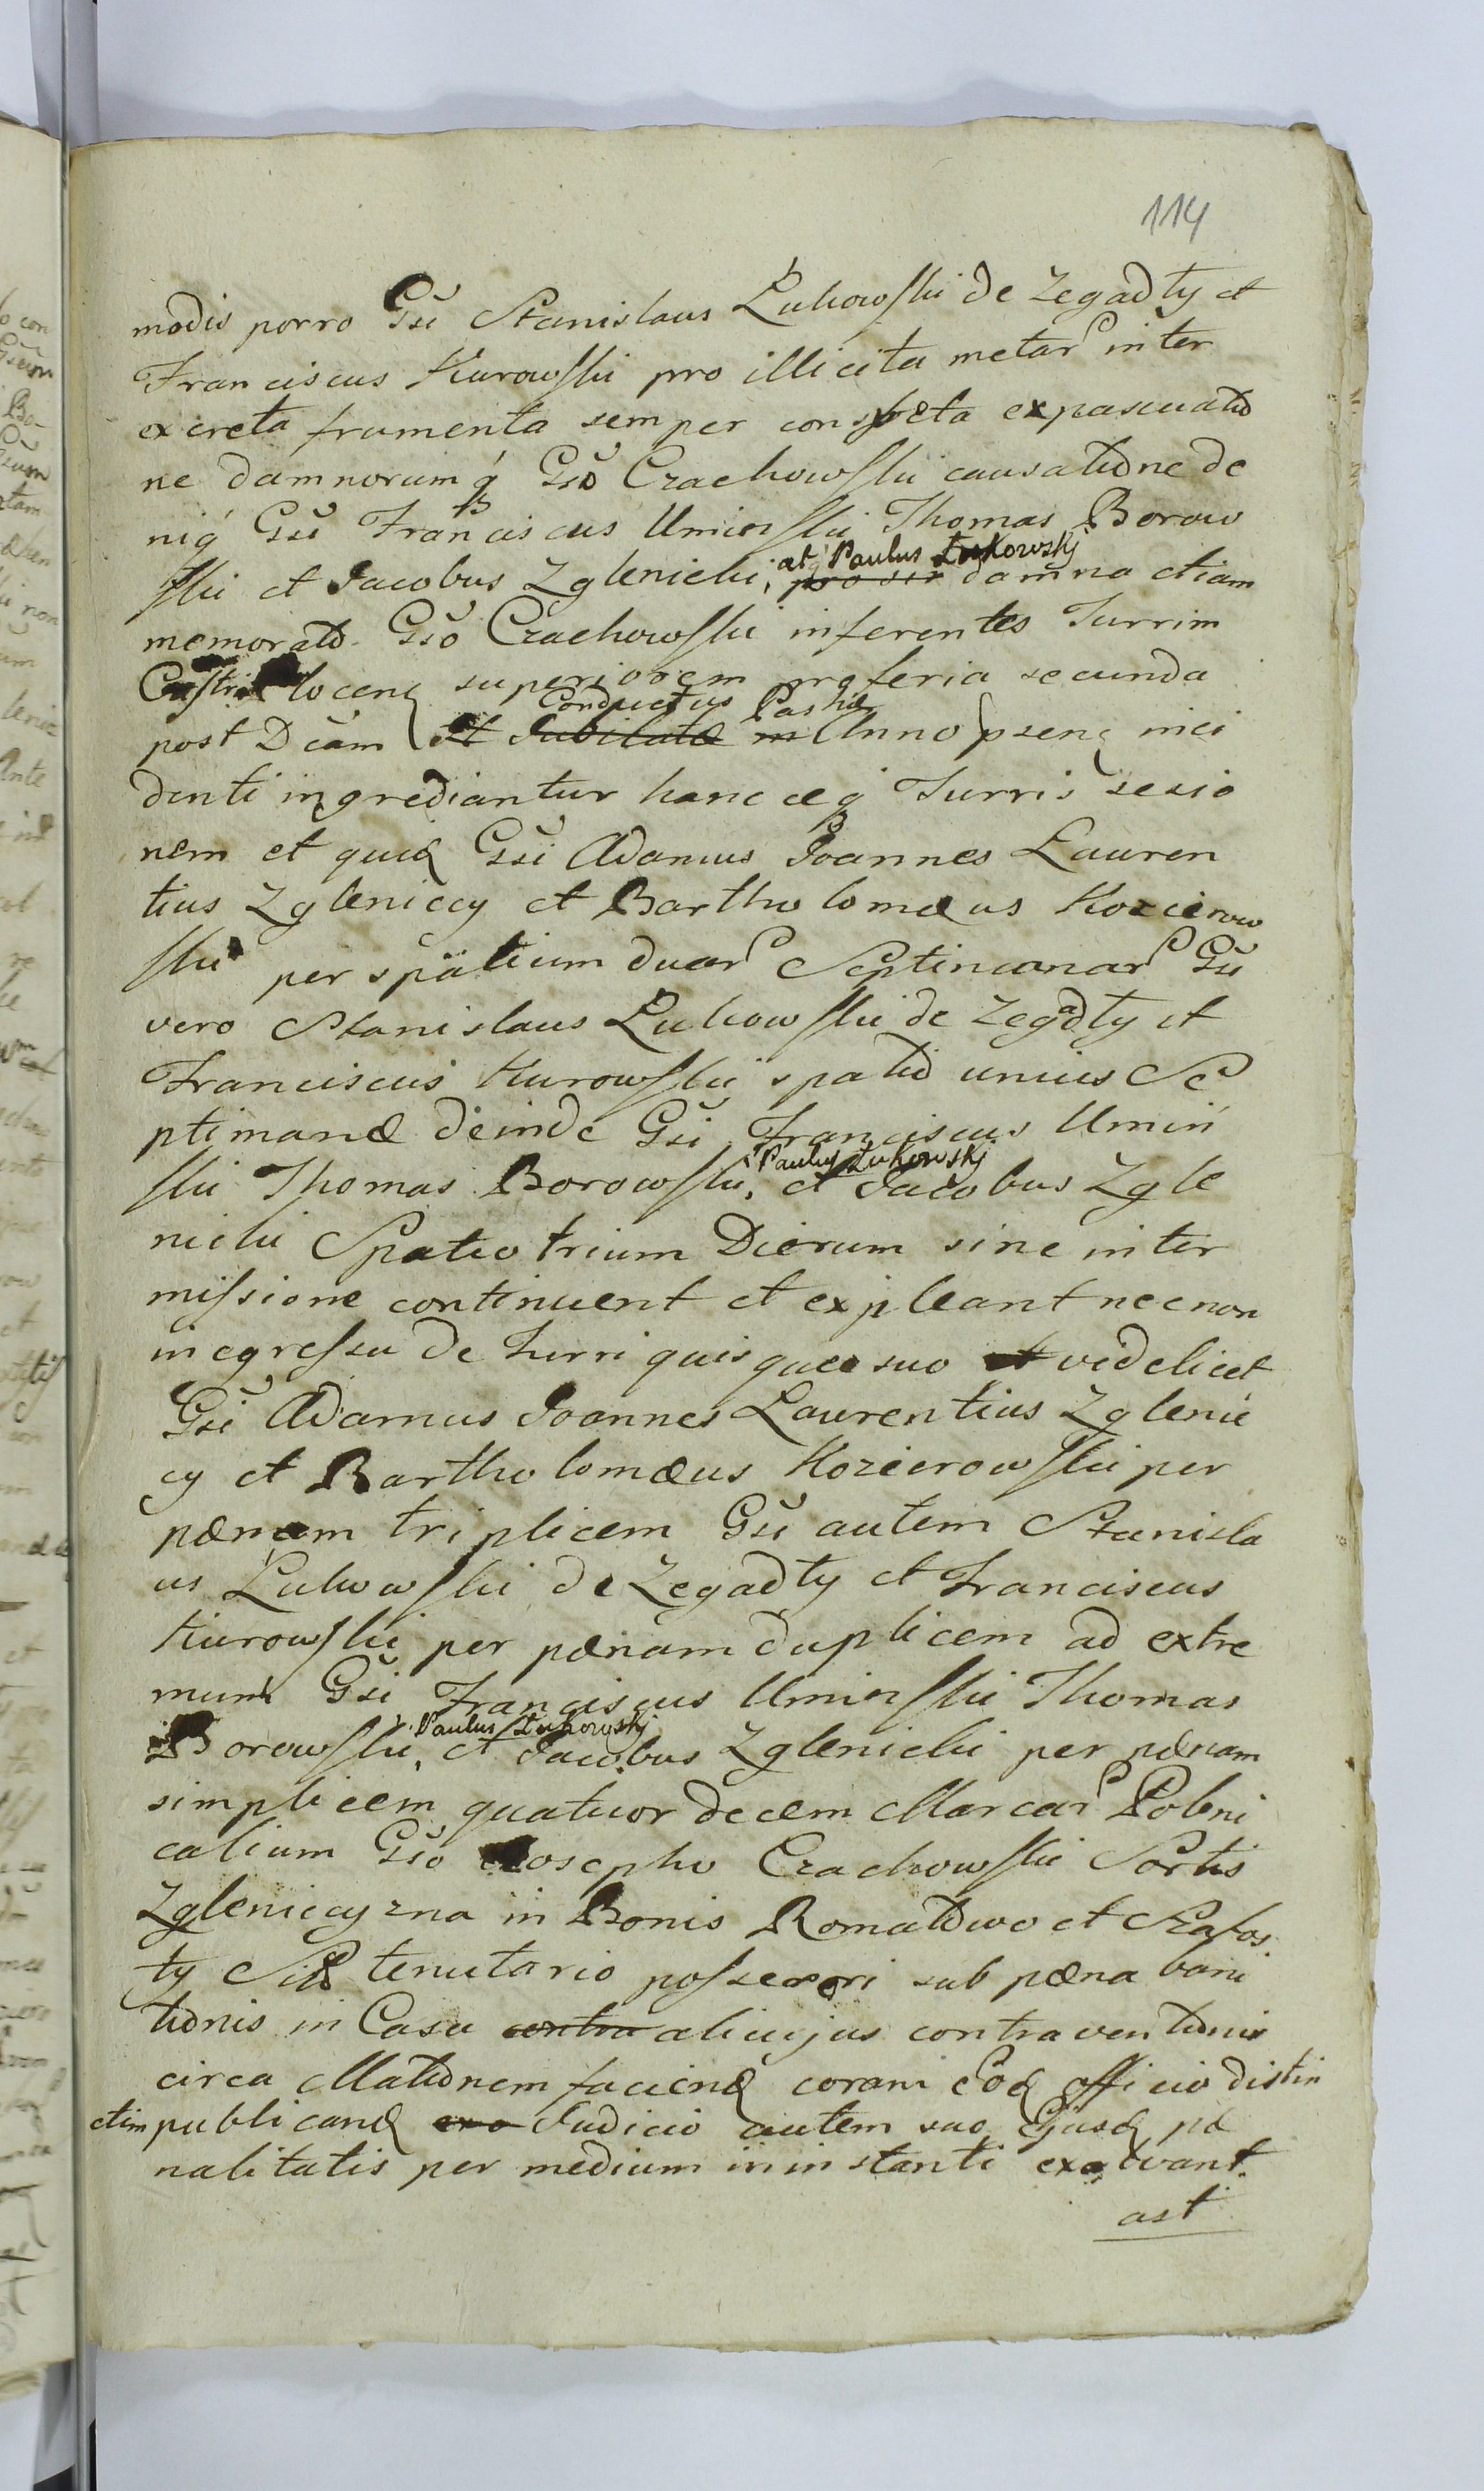 114
modis porro Gsi Stanislaus Łukowski de Zegadły et
Franciscus Kurowski pro illicita metar inter
excreta frumenta semper conspecta expascuatio
ne damnorumq́ Gso Czachowski causatione de
niq́ Gsi Franciscus Uminski Thomas Borow
ski et Jacobus Zglenicki, atq́ Paulus Łukowskj damna etiam
memorato Gso Czachowski inferentes Turrim
Castri locenȩ superiorem pro feria secunda
post Dcam Conductus Paschæ Anno psenȩ inci
denti ingrediantur hanc æq́ Turris sessio
nem et quidȩ Gsi Adamus Joannes Lauren
tius Zgleniccy et Bartholomæus Kozierow
ski per spatium duar Septimanar Gsi
vero Stanislaus Łukowski de Zegadły et
Franciscus Kurowski spatio unius Se
ptimanæ deinde Gsi Franciscus Umiń
ski Thomas Borowski, Paulus Łukowskj et Jacobus Zgle
nicki Spatio trium Dierum sine inter
missione continuent et expleant necnon
in egressu de Turri quisque suo videlicet
Gsi Adamus Joannes Laurentius Zglenic
cy et Bartholomæus Kozierowski per
pænam triplicem Gsi autem Stanisla
us Łukowski de Zegadły et Franciscus
Kurowski per pænam duplicem ad extre
mum Gsi Franciscus Uminski Thomas
Borowski, Paulus Łukowskj et Jacobus Zglenicki per pænam
simplicem quatuordecem Marcar Poloni
calium Gso Josepho Czachowski Sortis
Zgleniccyzna in Bonis Romatowo et
ty tenutario possessori sub pæna bani
tionis in Casu contra alicujus contraventionis
circa Mationem faciendȩ coram eodȩ officio distin
ctim publicandȩ Judicio autem suo Ejusdȩ pæ
nalitatis per medium in instanti exolvant.
ast